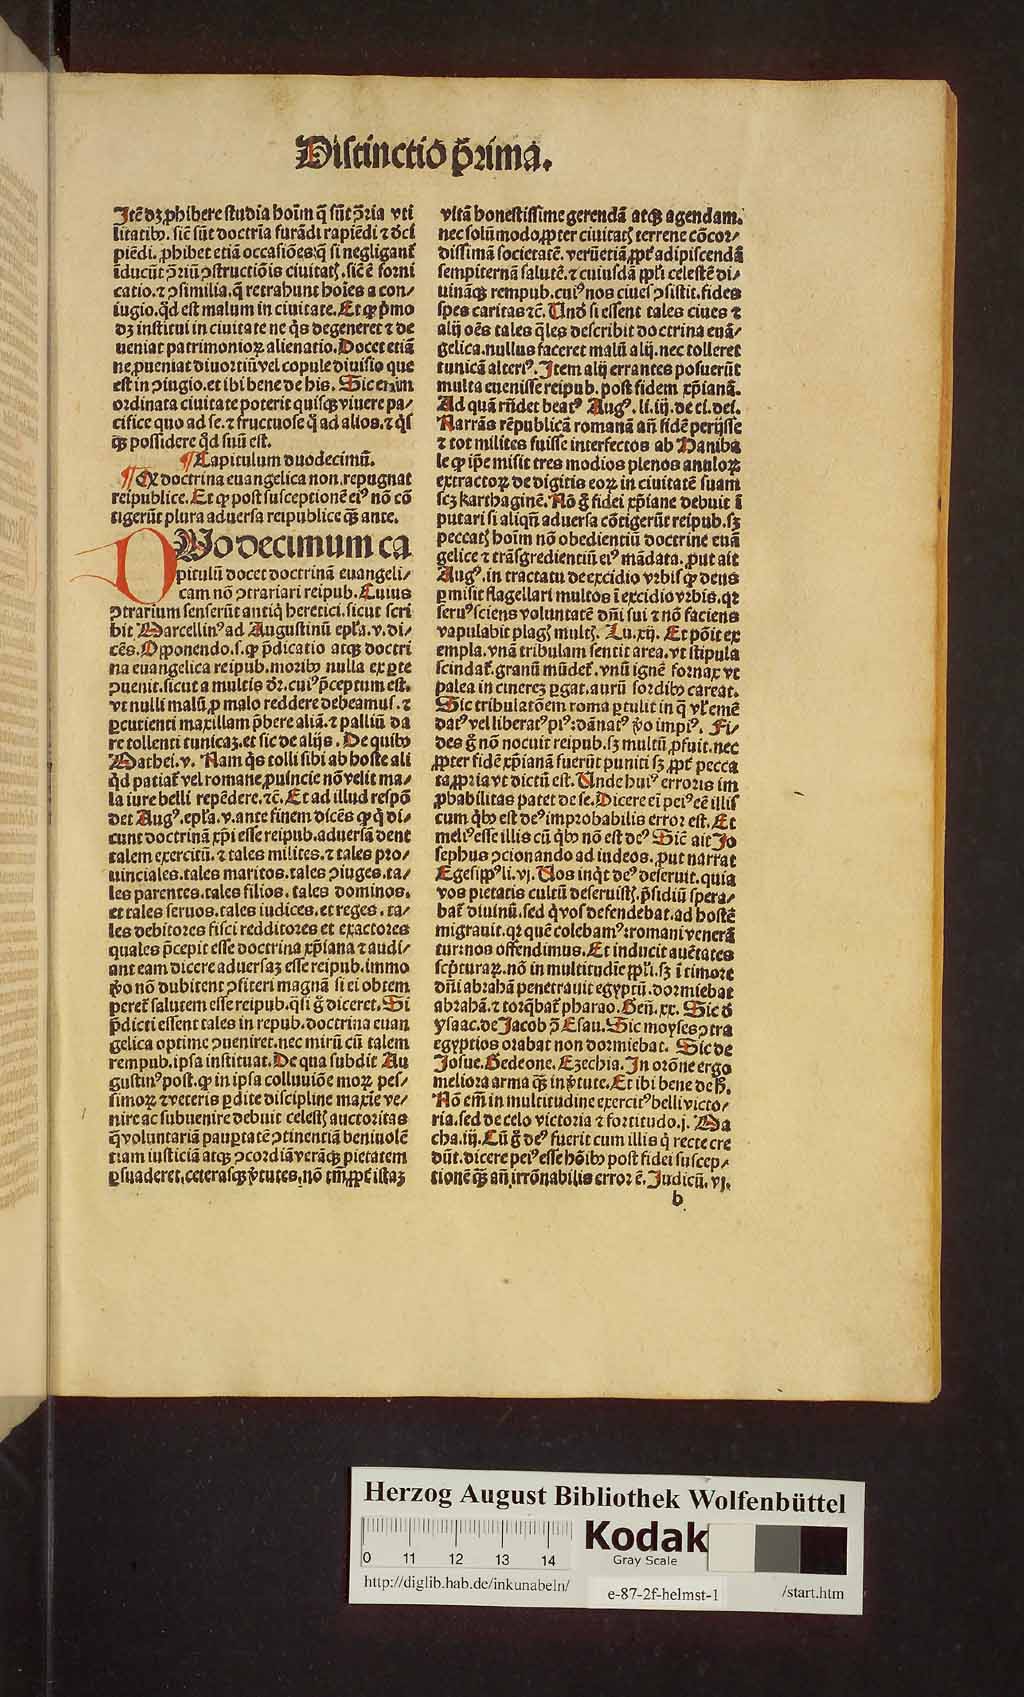 Distinctiō p̄rima.
Itē dꝫ ꝓhibere studia hoīm q̄ sūt ꝯ̄ria vti
litatibꝰ. sic̄ sūt doctria furādi rapiēdi ⁊ dc̄i
piēdi. ꝓhibet etiā occasiōes: q̄ si negligant̄
īducūt ꝯ̄riū ꝯstructiōis ciuitatꝭ. sic̄ ē forni
catio. ⁊ ꝯsimilia. q̄ retrahunt hoīes a con⸗
iugio. qd̄ est malum in ciuitate. Et ꝙ p̄mo
dꝫ institui in ciuitate ne q̄s degeneret ⁊ de
ueniat patrimonioꝝ alienatio. Docet etiā
ne ꝓueniat diuortiū vel copule diuisio que
est in ꝯiugio. et ibi bene de his. Sic enim
ordinata ciuitate poterit quisqꝫ viuere pa⸗
cifice quo ad se. ⁊ fructuose q̄ ad alios. ⁊ q̄s
qꝫ possidere qd̄ suū est.
¶ Capitulum duodecimū.
¶ Qꝫ doctrina euangelica non repugnat
reipublice. Et ꝙ post susceptionē eiꝰ nō cō
tigerūt plura aduersa reipublice qꝫ ante.
DUodecimum ca
pitulū docet doctrinā euangeli⸗
cam nō ꝯtrariari reipub. Cuius
ꝯtrarium senserūt antiq̄ heretici. sicut scri
bit Marcellinꝰ ad Augustinū epl̄a. v. di⸗
cēs. Opponendo. s. ꝙ p̄dicatio atqꝫ doctri
na euangelica reipub. moribꝰ nulla ex ꝑte
ꝯuenit. sicut a multis dr̄. cuiꝰ p̄ceptum est.
vt nulli malū ꝓ malo reddere debeamus. ⁊
ꝑcutienti maxillam p̄bere aliā. ⁊ palliū da
re tollenti tunicaꝫ. et sic de alijs. De quibꝰ
Mathei. v. Nam q̄s tolli sibi ab hoste ali
qd̄ patiat̄ vel romane ꝓuincie nō velit ma⸗
la iure belli repēdere. ⁊c̄. Et ad illud respō
det Augꝰ. epl̄a. v. ante finem dicēs ꝙ q̄ di⸗
cunt doctrinā xp̄i esse reipub. aduersā dent
talem exercitū. ⁊ tales milites. ⁊ tales pro⸗
uinciales. tales maritos. tales ꝯiuges. ta⸗
les parentes. tales filios. tales dominos.
et tales seruos. tales iudices. et reges. ta⸗
les debitores fisci redditores et exactores
quales p̄cepit esse doctrina xp̄iana ⁊ audi⸗
ant eam dicere aduersaꝫ esse reipub. immo
v̄o nō dubitent ꝯfiteri magnā si ei obtem
peret̄ salutem esse reipub. q̄si g̊ diceret. Si
p̄dicti essent tales in repub. doctrina euan
gelica optime ꝯueniret. nec mirū cū talem
rempub. ipsa instituat. De qua subdit Au
gustinꝰ post. ꝙ in ipsa colluuiōe moꝝ pes⸗
simoꝝ ⁊ veteris ꝑdite discipline maxīe ve⸗
nire ac subuenire debuit celestꝭ auctoritas
q̄ voluntariā pauꝑtatē ꝯtinentiā beniuolē
tiam iusticiā atqꝫ ꝯcordiā verāqꝫ pietatem
ꝑsuaderet. ceterasqꝫ v̄tutes. nō tm̄ ꝓpt̄ istaꝫ
vitā honestissime gerendā atqꝫ agendam.
nec solūmodo ꝓpter ciuitatꝭ terrene cōcor⸗
dissimā societatē. verūetiā ꝓpt̄ adipiscendā
sempiternā salutē. ⁊ cuiusdā ppl̄i celestē di⸗
uināqꝫ rempub. cuiꝰ nos ciues ꝯsistit. fides
spes caritas ⁊c̄. Unḋ si essent tales ciues ⁊
alij oēs tales q̄les describit doctrina euā⸗
gelica. nullus faceret malū alij. nec tolleret
tunicā alteriꝰ. Item alij errantes posuerūt
multa euenisse reipub. post fidem xp̄ianā.
Ad quā rn̄det beatꝰ Augꝰ. li. iij. de ci. dei.
Narrās rēpublicā romanā an̄ fidē perijsse
⁊ tot milites fuisse interfectos ab Haniba
le ꝙ ip̄e misit tres modios plenos anuloꝝ
extractoꝝ de digitis eoꝝ in ciuitatē suam
scꝫ karthaginē. Nō g̊ fidei xp̄iane debuit ī
putari si aliqn̄ aduersa cōtigerūt reipub. sꝫ
peccatꝭ hoīm nō obedientiū doctrine euā
gelice ⁊ trāsgredientiū eiꝰ mādata. ꝓut ait
Augꝰ. in tractatu de excidio vrbis ꝙ deus
ꝑmisit flagellari multos ī excidio vrbis. qꝛ
seruꝰ sciens voluntatē dn̄i sui ⁊ nō faciens
vapulabit plagꝭ multꝭ. Lu. xij. Et pōit ex
empla. vnā tribulam sentit area. vt stipula
scindat̄. granū mūdet̄. vnū ignē fornax vt
palea in cinereꝫ ꝑgat. aurū sordibꝰ careat.
Sic tribulatōem roma ꝑtulit in q̄ vl̄ emē
datꝰ vel liberatꝰ piꝰ: dānatꝰ v̄o impiꝰ. Fi⸗
des g̊ nō nocuit reipub. sꝫ multū ꝓfuit. nec
ꝓpter fidē xp̄ianā fuerūt puniti sꝫ ꝓpt̄ pecca
ta ꝓpria vt dictū est. Unde huiꝰ erroris im
ꝓbabilitas patet de se. Dicere ei peiꝰ eē illis
cum qͥbꝰ est deꝰ improbabilis error est. Et
meliꝰ esse illis cū qͥbꝰ nō est deꝰ Sic̄ ait Jo
sephus ꝯcionando ad iudeos. ꝓut narrat
Egesippꝰ li. vj. Uos inq̄t deꝰ deseruit. quia
vos pietatis cultū deseruistꝭ. p̄sidiū spera⸗
bat̄ diuinū. sed q̄ vos defendebat. ad hostē
migrauit. qꝛ quē colebamꝰ: romani venerā
tur: nos offendimus. Et inducit auc̄tates
scp̄turaꝝ. nō in multitudīe ppl̄i. sꝫ ī timore
dn̄i abrahā penetrauit egyptū. dormiebat
abrahā. ⁊ torq̄bat̄ pharao. Gen̄. xx. Sic ḋ
ysaac. de Jacob ꝯ̄ Esau. Sic moyses ꝯtra
egyptios orabat non dormiebat. Sic de
Josue. Gedeone. Ezechia. In orōne ergo
meliora arma qꝫ in v̄tute. Et ibi bene de h̊.
Nō em̄ in multitudine exercitꝰ belli victo⸗
ria. sed de celo victoria ⁊ fortitudo. j. Ma
cha. iij. Cū g̊ deꝰ fuerit cum illis q̄ recte cre
dūt. dicere peiꝰ esse hōibꝰ post fidei suscep⸗
tionē qꝫ an̄. irrōnabilis error ē. Judicū. vj.
b
Herzog August Bibliothek Wolfenbüttel
0 11 12 13 14
Kodak
Gray Scale
http://diglib.hab.de/inkunabeln/
e-87-2f-helmst-1
/start.htm